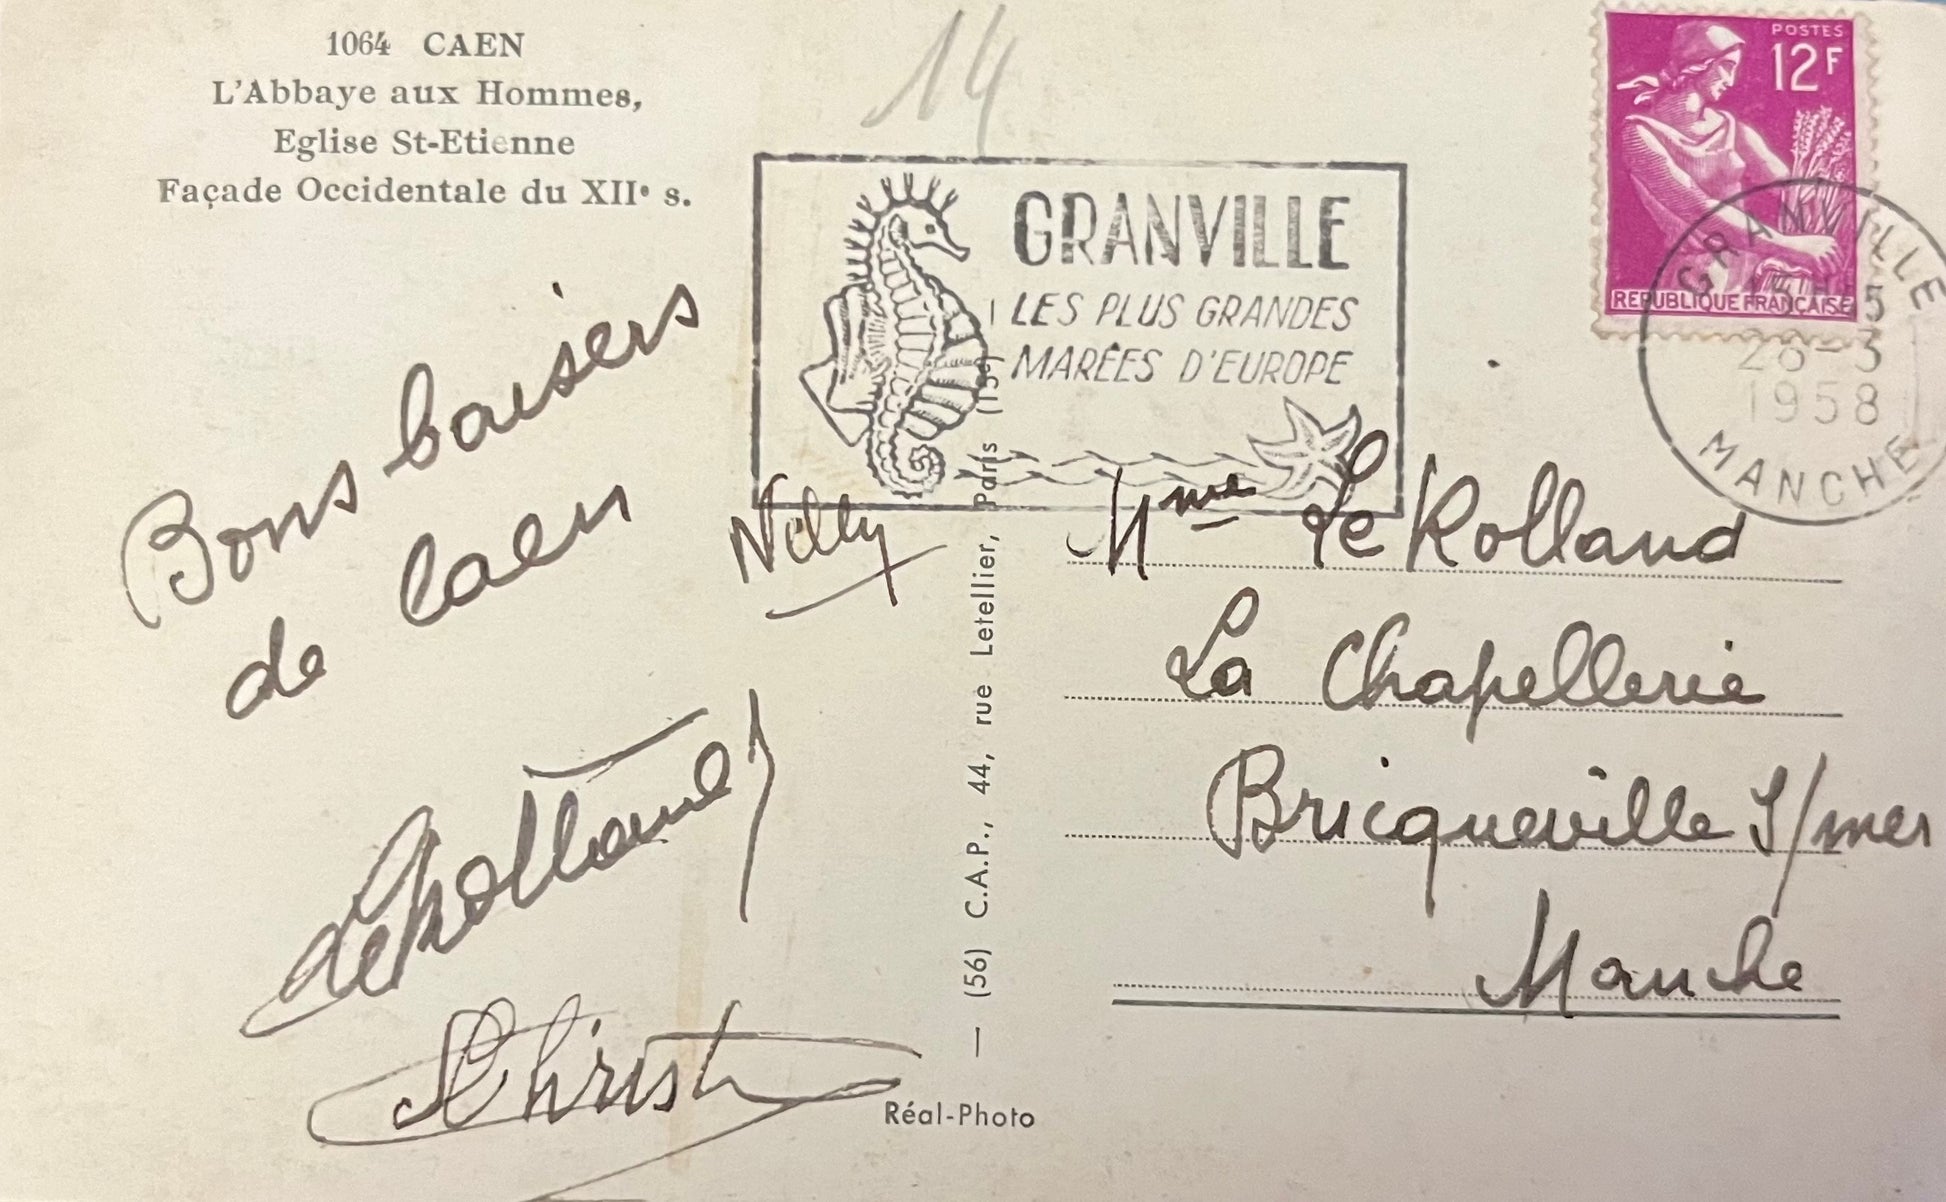 1064 CAEN
L'Abbaye aux Hommes,
Eglise St-Etienne
Façade Occidentale du XIIe s.
14
GRANVILLE
LES PLUS GRANDES
MARÉES D'EUROPE
POSTES
12F
REPUBLIQUE FRANÇAISE
GRANVILLE
1958
MANCHE
Bons baisers
de Caen
Le Rolland
Christ
(56) C.A.P., 44, rue Letellier, Paris (15e)
Réal-Photo
Mme Le Rolland
La Chapellerie
Bricqueville s/mer
Manche